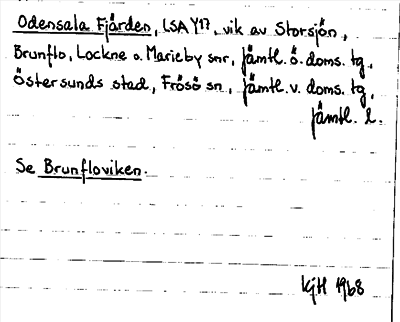 Odensala Fjärden, LSA Y17, vik av Storsjön,
Brunflo, Lockne o. Marieby snr, Jämtl. ö. doms. tg,
Östersunds stad, Frösö sn, Jämtl. v. doms. tg,
Jämtl. l.
Se Brunfloviken.
KGH 1968